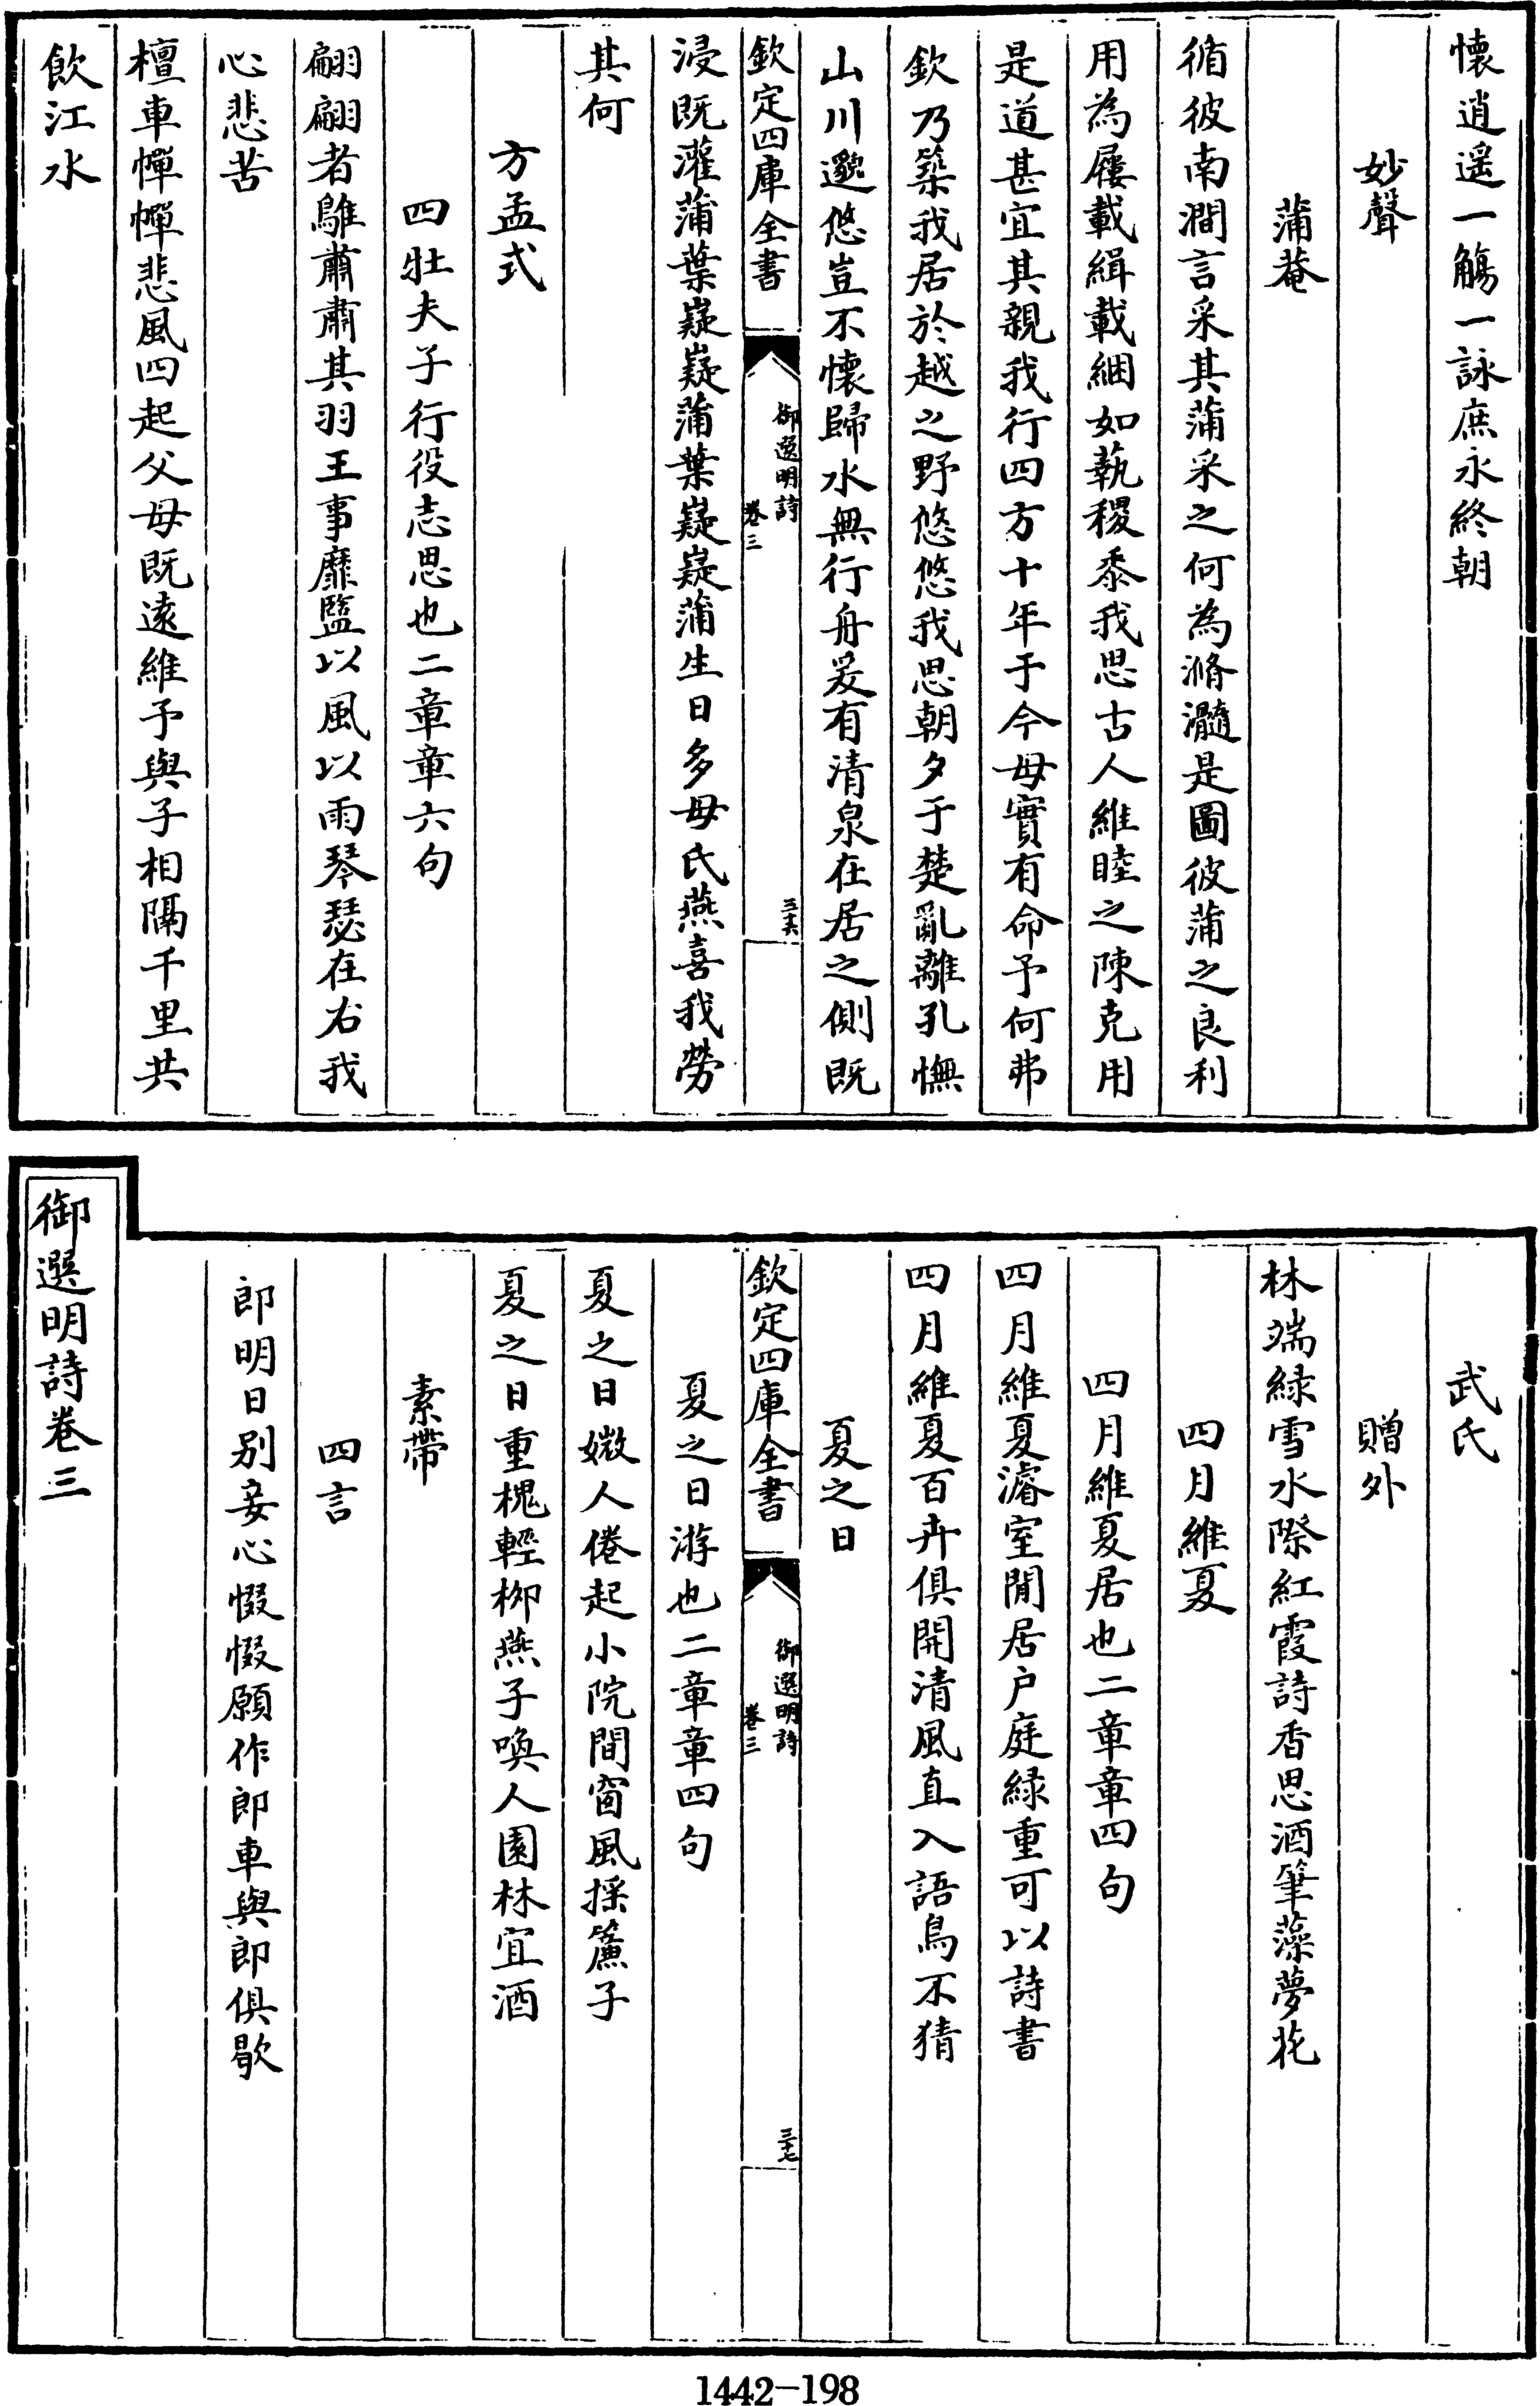 懷逍遥一觴一詠庶永終朝
妙聲
蒲菴
循彼南澗言采其蒲采之何為滫瀡是圖彼蒲之良利
用為屨載緝載綑如蓺稷黍我思古人維睦之陳克用
是道甚宜其親我行四方十年于今母實有命予何弗
欽乃築我居於越之野悠悠我思朝夕于楚亂離孔憮
山川邈悠豈不懷歸水無行舟爰有清泉在居之側既
欽定四庫全書
御選明詩
卷三
三十六
浸既灌蒲葉嶷嶷蒲葉嶷嶷蒲生日多母氏燕喜我勞
其何
方孟式
四牡夫子行役志思也二章章六句
翩翩者鵻肅肅其羽王事靡盬以風以雨琴瑟在右我
心悲苦
檀車幝幝悲風四起父母既遠維予與子相隔千里共
飲江水
武氏
贈外
林端緑雪水際紅霞詩香思酒筆藻夢花
四月維夏
四月維夏居也二章章四句
四月維夏濬室閒居户庭緑重可以詩書
四月維夏百卉俱開清風直入語鳥不猜
夏之日
欽定四庫全書
御選明詩
卷三
三十七
夏之日游也二章章四句
夏之日媺人倦起小院間窗風揉簾子
夏之日重槐輕栁燕子喚人園林宜酒
素帶
四言
郎明日别妾心惙惙願作郎車與郎俱歇
御選明詩卷三
1442-198